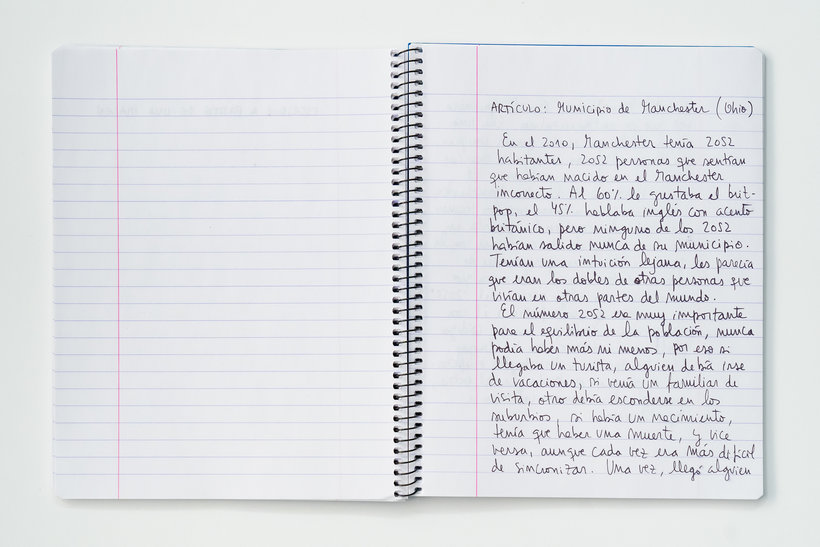 ARTÍCULO: Municipio de Manchester (Ohio)
En el 2010, Manchester tenía 2052
habitantes, 2052 personas que sentían
que habían nacido en el Manchester
incorrecto. Al 60% le gustaba el brit-
pop, el 45% hablaba inglés con acento
británico, pero ninguno de los 2052
habían salido nunca de su municipio.
Tenían una intuición lejana, les parecía
que eran los dobles de otras personas que
vivían en otras partes del mundo.
El número 2052 era muy importante
para el equilibrio de la población, nunca
podía haber más ni menos, por eso si
llegaba un turista, alguien debía irse
de vacaciones, si venía un familiar de
visita, otro debía esconderse en los
suburbios, si había un nacimiento,
tenía que haber una muerte, y vice
versa, aunque cada vez era más difícil
de sincronizar. Una vez, llegó alguien